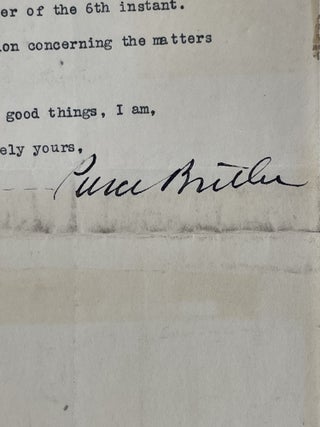 er of the 6th instant.
ion concerning the matters
good things, I am,
ely yours,
Pierce Butler